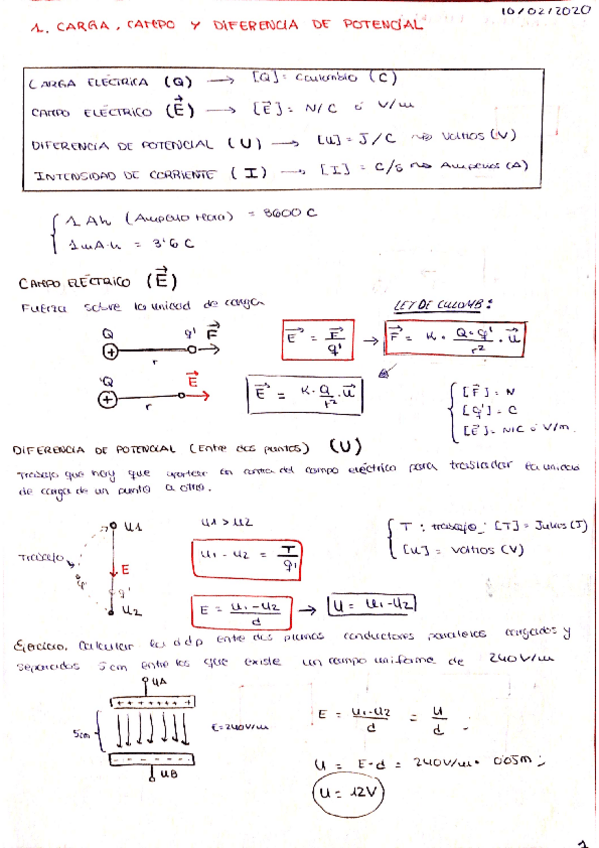 10/02/2020
1. CARGA, CAMPO Y DIFERENCIA DE POTENCIAL
CARGA ELÉCTRICA (Q) → [Q] = Coulombio (C)
CAMPO ELÉCTRICO (E⃗) → [E⃗] = N/C ó V/m
DIFERENCIA DE POTENCIAL (U) → [U] = J/C ⇝ Voltios (V)
INTENSIDAD DE CORRIENTE (I) → [I] = C/s ⇝ Amperios (A)
1 Ah (Amperio hora) = 3600 C
1 mA·h = 3'6 C
CAMPO ELÉCTRICO (E⃗)
Fuerza sobre la unidad de carga
LEY DE CULOMB:
Q q' F⃗
+ r
E⃗ = F⃗/q' → F⃗ = K · Q·q'/r² · u⃗
Q E⃗
+ r
E⃗ = K·Q/r² · u⃗
[F⃗] = N
[q'] = C
[E⃗] = N/C ó V/m
DIFERENCIA DE POTENCIAL (Entre dos puntos) (U)
Trabajo que hay que aportar en contra del campo eléctrico para trasladar la unidad
de carga de un punto a otro.
U1
U1 > U2
T: trabajo; [T] = Julios (J)
[U] = Voltios (V)
Trabajo
E
q'
U1 - U2 = T/q'
U2
E = U1-U2/d → U = U1-U2
Ejercicio. Calcular la ddp entre dos planos conductores paralelos cargados y
separados 5cm entre los que existe un campo uniforme de 240V/m
UA
+ + + + + + +
5cm
E=240V/m
E = U1-U2/d = U/d ;
- - - - - -
UB
U = E·d = 240V/m · 0'05m ;
U = 12V
1